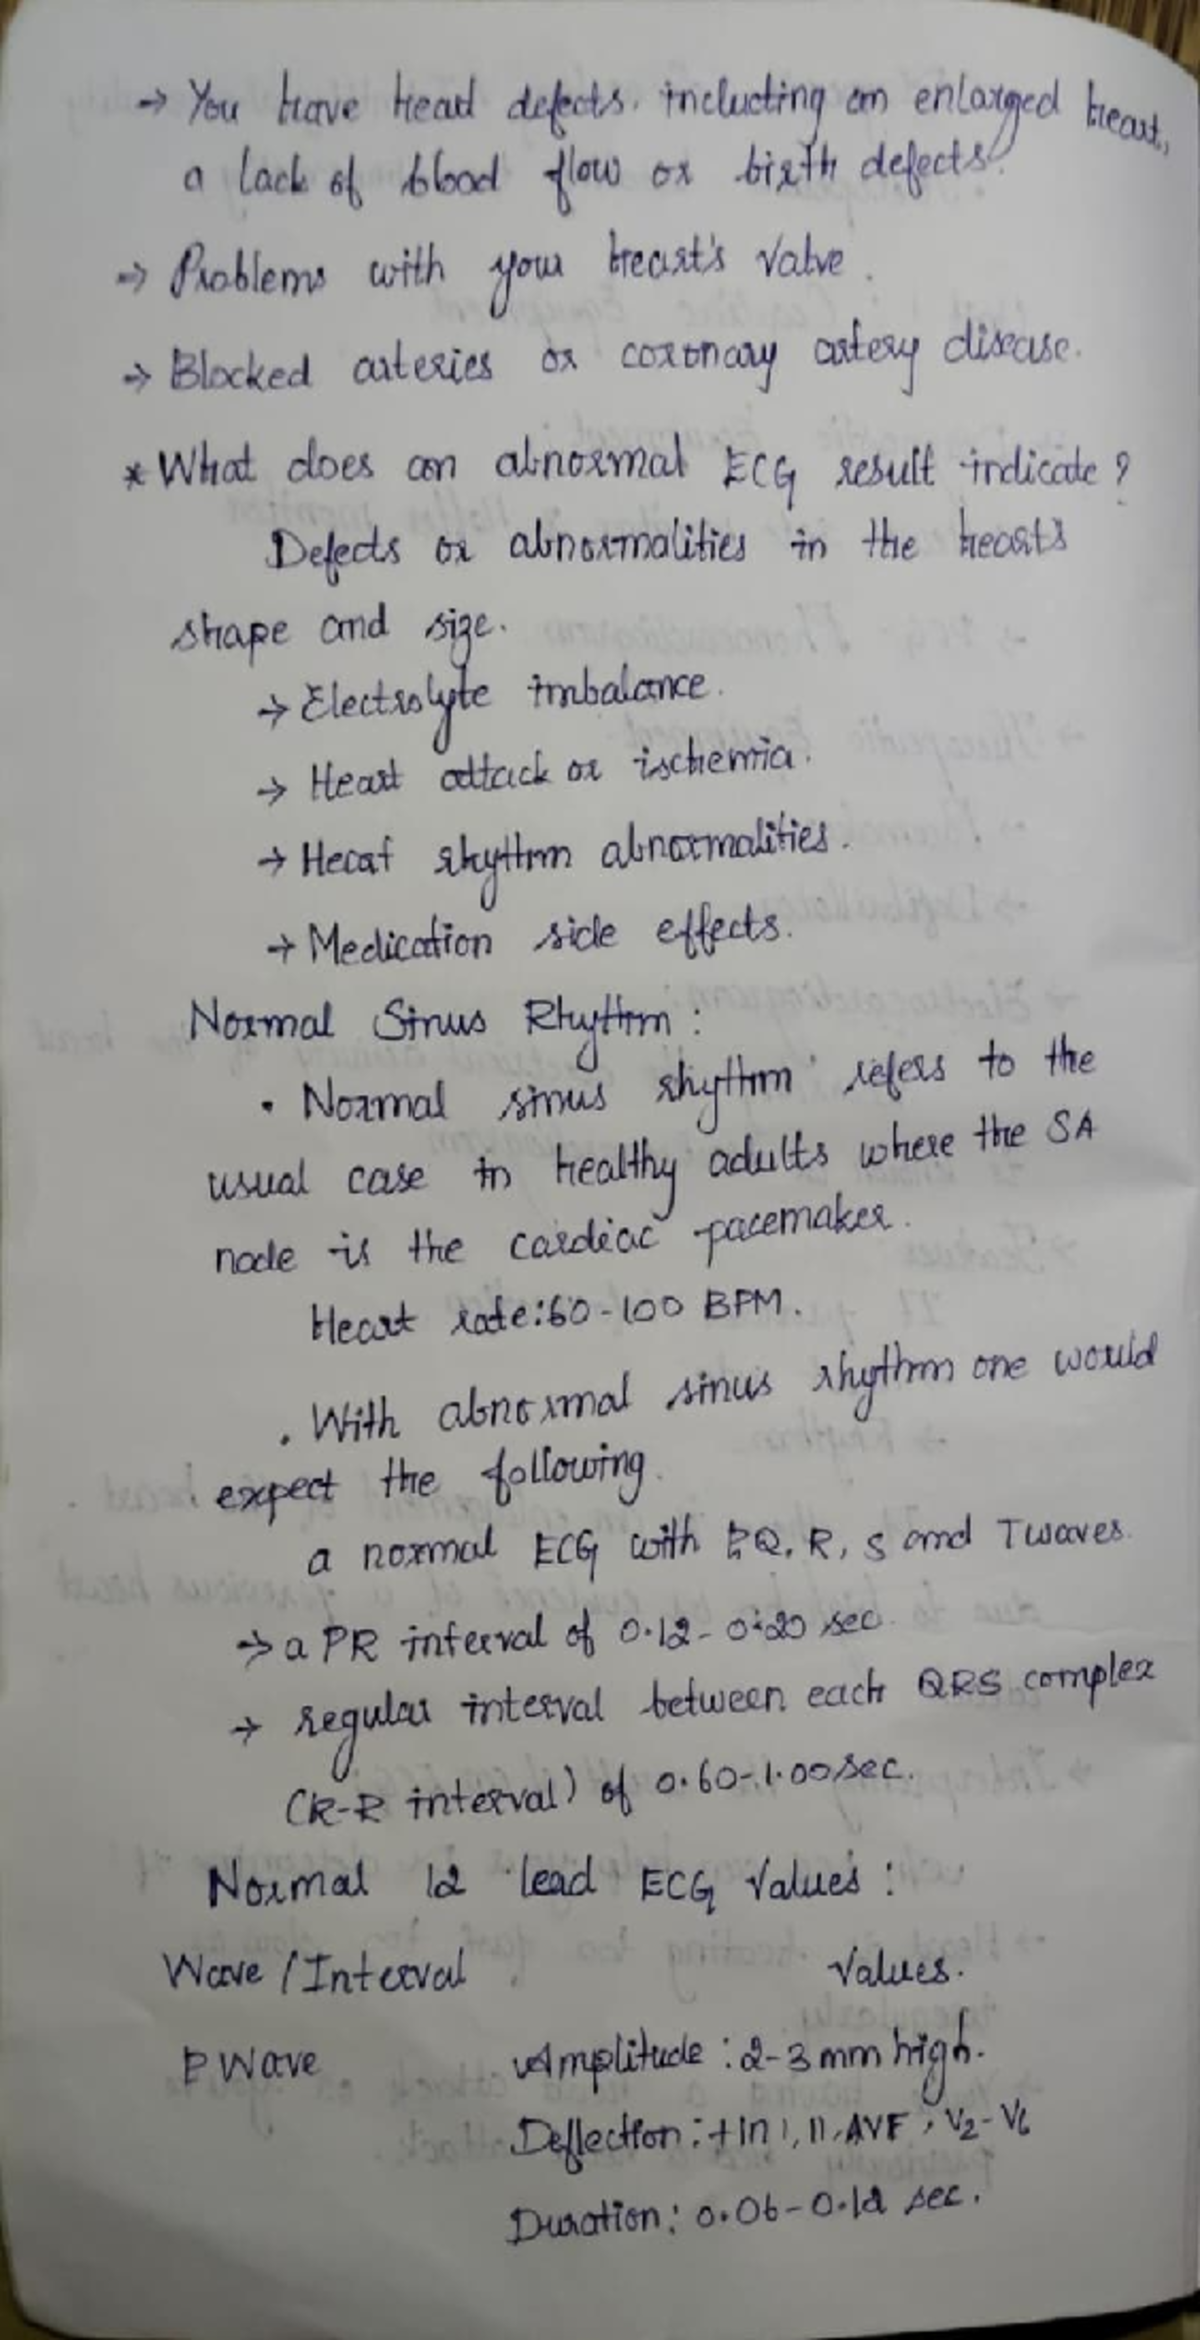 → You have heart defects. including an enlarged heart,
a lack of blood flow or birth defects.
→ Problems with your heart's valve.
→ Blocked arteries or coronary artery disease.
* What does an abnormal ECG result indicate?
Defects or abnormalities in the heart's
shape and size.
→ Electrolyte imbalance.
→ Heart attack or ischemia.
→ Heart rhythm abnormalities.
→ Medication side effects.
Normal Sinus Rhythm :
• Normal sinus rhythm refers to the
usual case in healthy adults where the SA
node is the cardiac pacemaker.
Heart rate:60-100 BPM.
. With abnormal sinus rhythm one would
expect the following.
a normal ECG with P,Q, R, S and T waves.
→ a PR interval of 0.12-0.20 sec.
→ regular interval between each QRS complex
(R-R interval) of 0.60-1.00 sec.
Normal 12 lead ECG Values :
Wave / Interval Values.
P Wave Amplitude : 2-3 mm high.
Deflection : + in I, II, AVF, V2-V6
Duration : 0.06-0.12 sec.